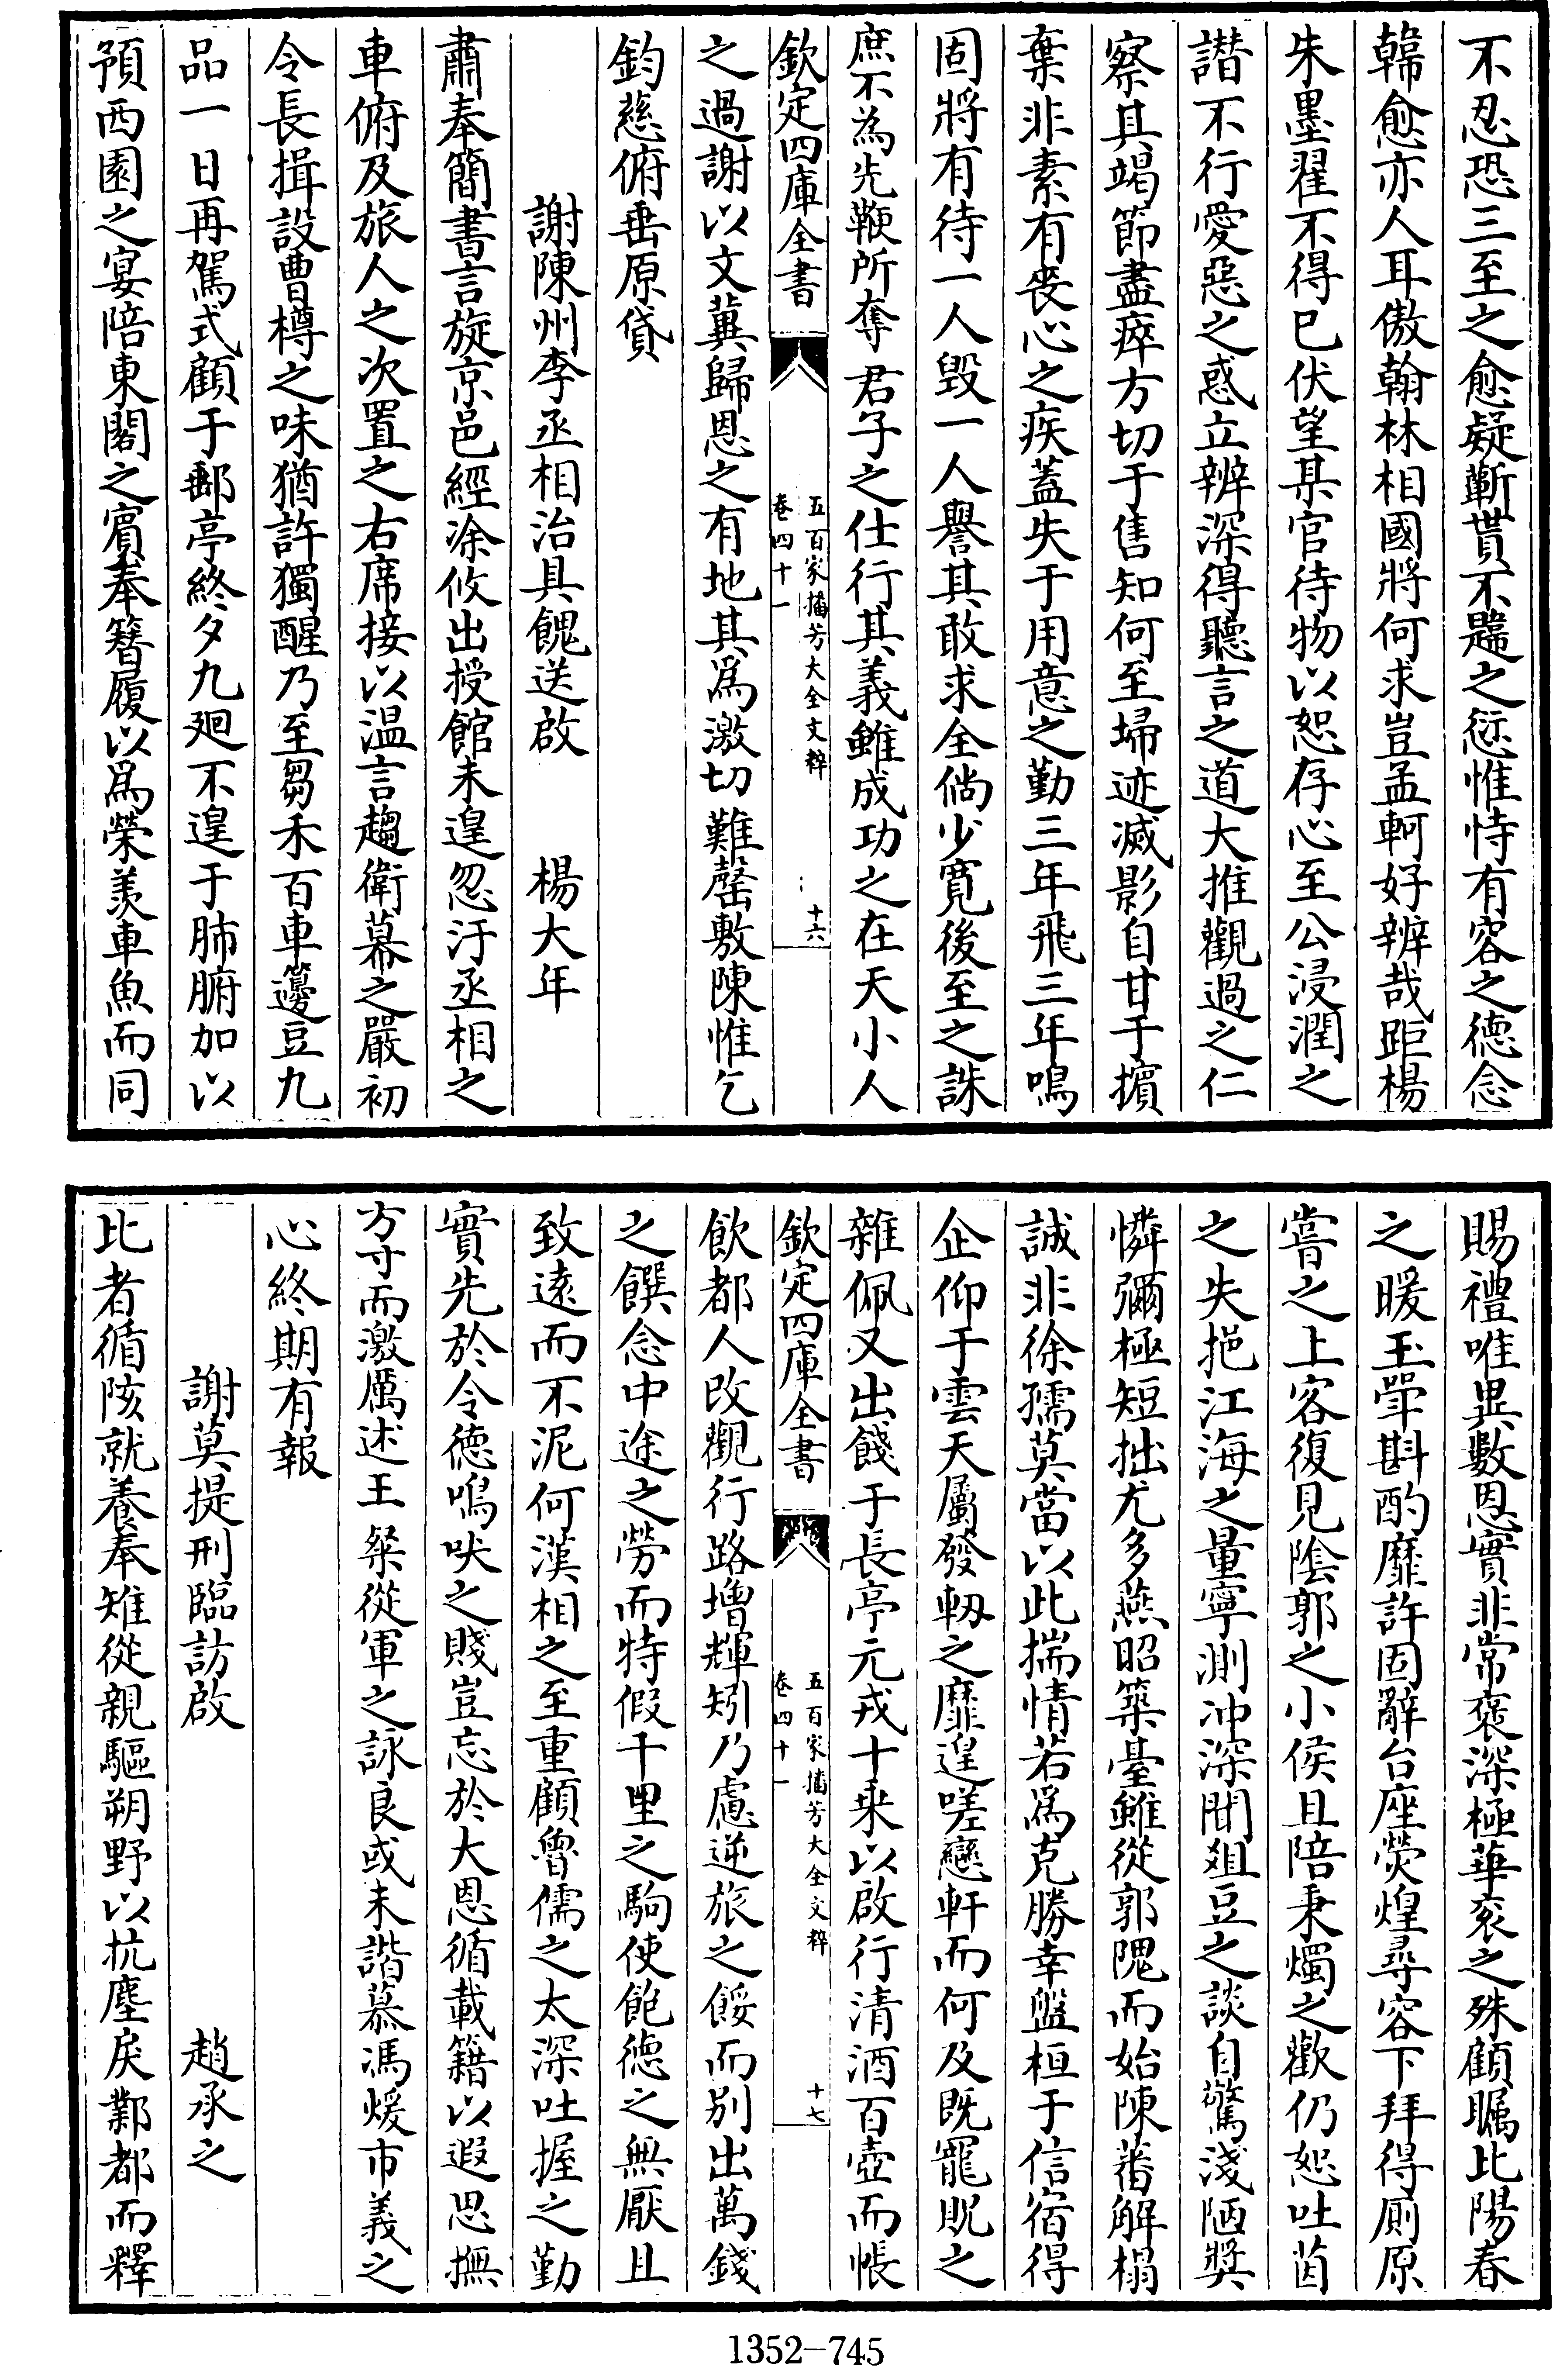 不忍恐三至之愈疑蘄貰不韙之愆惟恃有容之德念
韓愈亦人耳傲翰林相國將何求豈孟軻好辨哉距楊
朱墨翟不得已伏望某官待物以恕存心至公浸潤之
譛不行愛惡之惑立辨深得聽言之道大推觀過之仁
察其竭節盡瘁方切于售知何至埽迹滅影自甘于擯
棄非素有喪心之疾蓋失于用意之勤三年飛三年鳴
固將有待一人毁一人譽其敢求全倘少寛後至之誅
庶不為先鞭所奪君子之仕行其義雖成功之在天小人
欽定四庫全書
五百家播芳大全文粹
卷四十一
十六
之過謝以文冀歸恩之有地其爲激切難罄敷陳惟乞
鈞慈俯垂原貸
謝陳州李丞相治具餽送啟 楊大年
肅奉簡書言旋京邑經涂攸出授館未遑忽汙丞相之
車俯及旅人之次置之右席接以温言趨衛幕之嚴初
令長揖設曹樽之味猶許獨醒乃至芻禾百車籩豆九
品一日再駕式顧于郵亭終夕九廻不遑于肺腑加以
預西園之宴陪東閣之賓奉簪履以爲榮羨車魚而同
賜禮唯異數恩實非常褒深極華衮之殊顧矚比陽春
之暖玉斝斟酌靡許固辭台座熒煌尋容下拜得厠原
嘗之上客復見陰郭之小侯且陪秉燭之歡仍恕吐茵
之失挹江海之量寧測冲深聞爼豆之談自驚淺陋奬
憐彌極短拙尤多燕昭築臺雖從郭隗而始陳蕃解榻
誠非徐孺莫當以此揣情若爲克勝幸盤桓于信宿得
企仰于雲天屬發軔之靡遑嗟戀軒而何及既寵貺之
雜佩又出餞于長亭元戎十乗以啟行清酒百壺而帳
欽定四庫全書
五百家播芳大全文粹
卷四十一
十七
飲都人改觀行路增輝矧乃慮逆旅之餒而别出萬錢
之饌念中途之勞而特假千里之駒使飽德之無厭且
致遠而不泥何漢相之至重顧魯儒之太深吐握之勤
實先於令德鳴吠之賤豈忘於大恩循載籍以遐思撫
方寸而激厲述王粲從軍之詠良或未諧慕馮煖市義之
心終期有報
謝莫提刑臨訪啟 趙承之
比者循陔就養奉雉從親驅朔野以抗塵戾鄴都而釋
1352-745